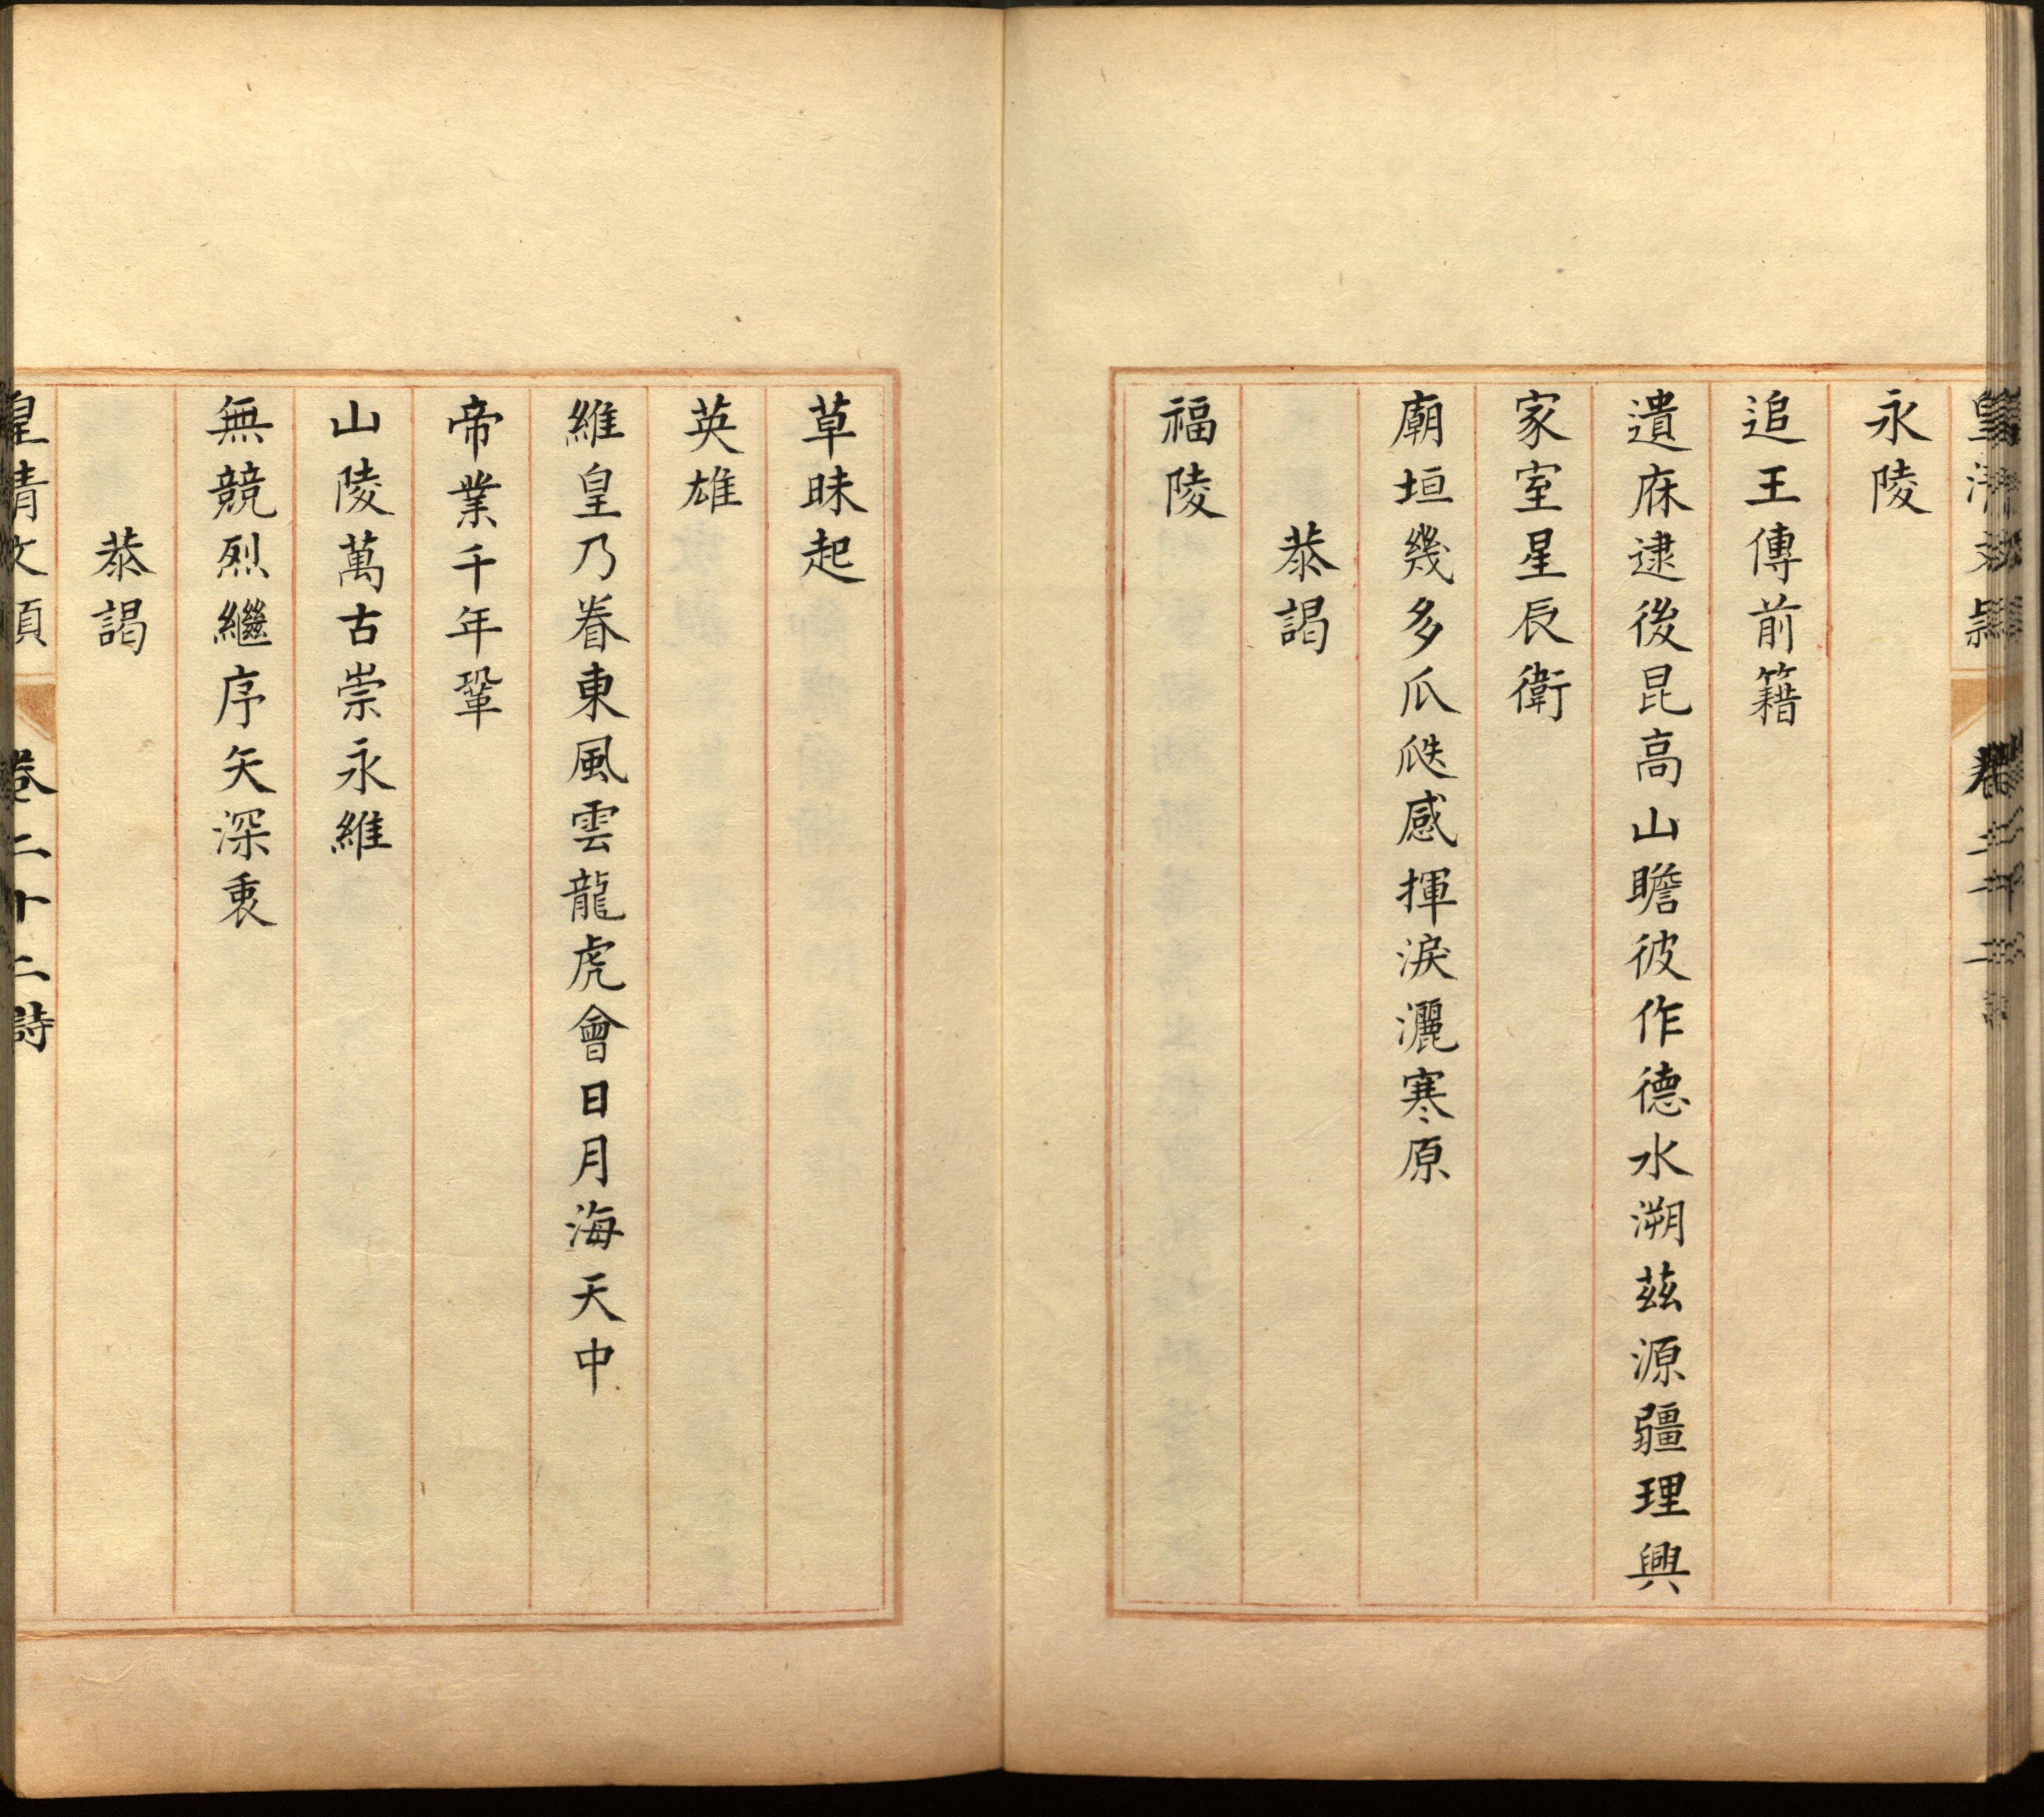 永陵
追王傳前籍
遺庥逮後昆高山瞻彼作德水溯茲源疆理興
家室星辰衛
廟垣幾多瓜瓞感揮淚灑寒原
恭謁
福陵
草昧起
英雄
維皇乃眷東風雲龍虎會日月海天中
帝業千年鞏
山陵萬古崇永維
無競烈繼序矢深衷
恭謁
皇清文頴 卷二十二詩